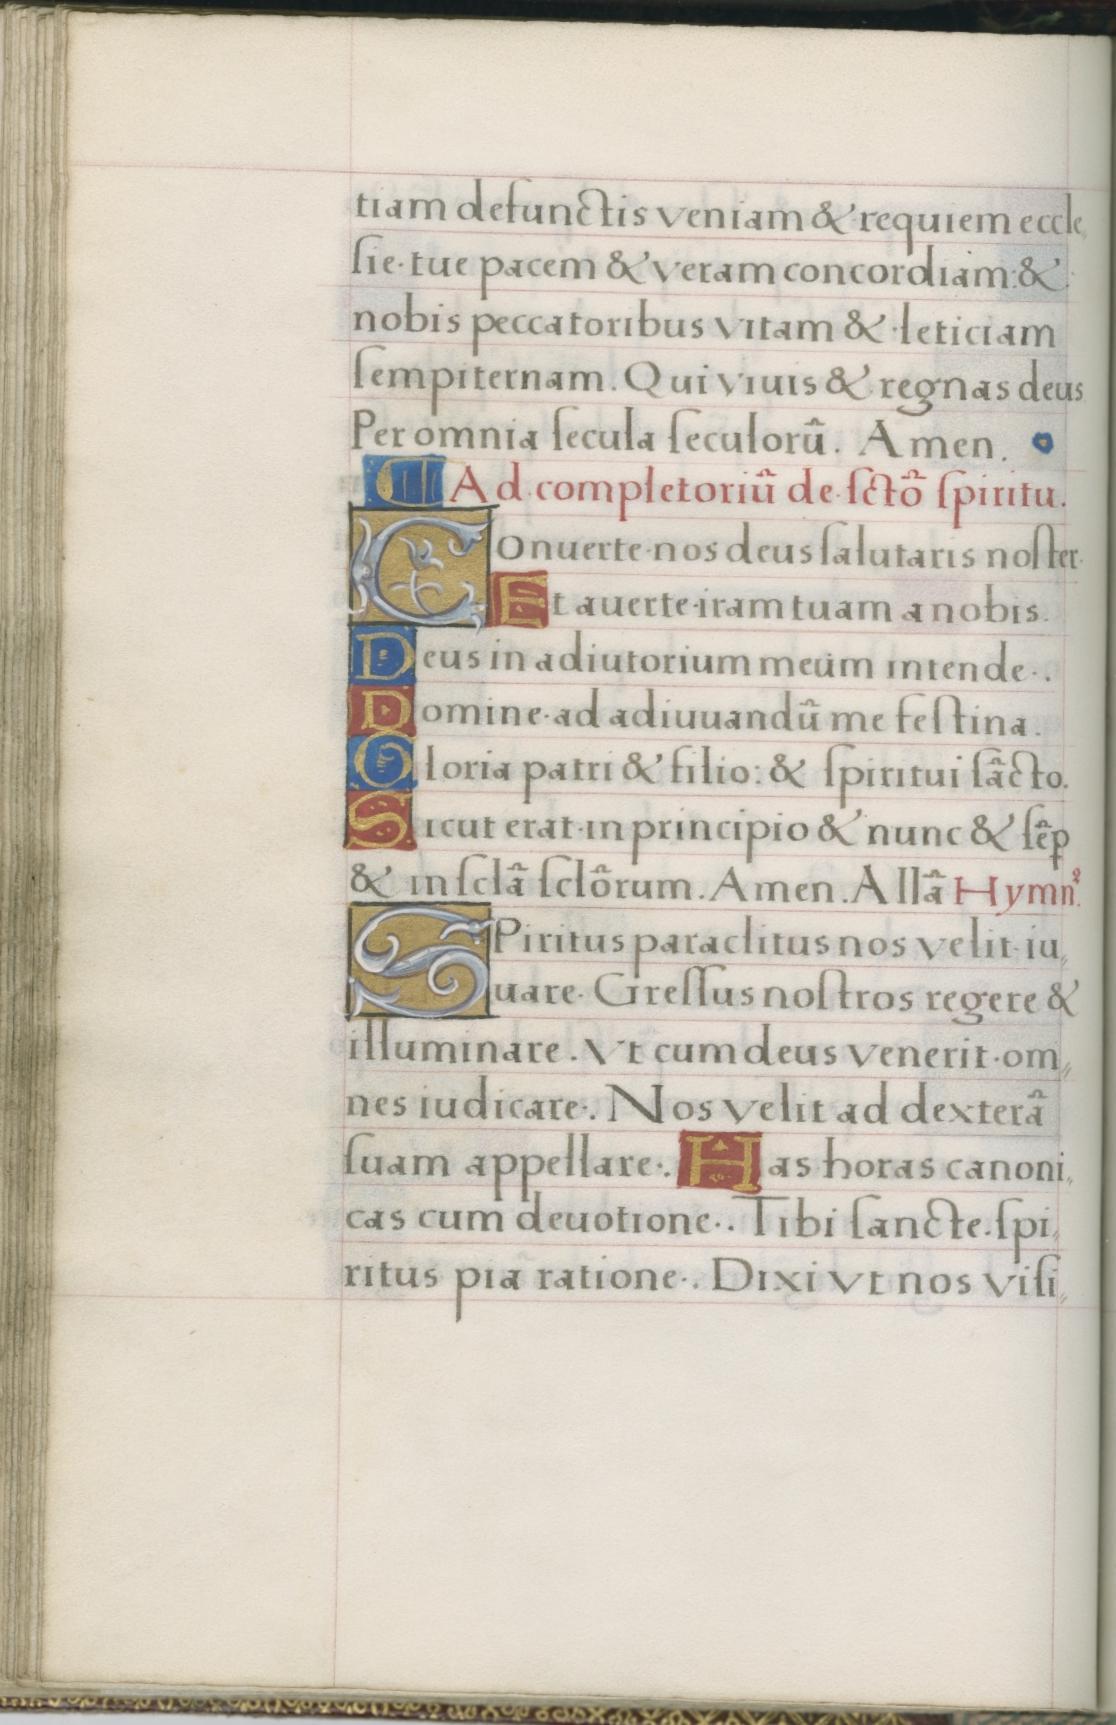 tiam defunctis veniam & requiem eccle,
ſie·tue pacem & veram concordiam:&
nobis peccatoribus vitam & leticiam
ſempiternam. Qui viuis & regnas deus
Per omnia ſecula ſeculorũ. Amen.
Ad completoriũ de ſctõ ſpiritu.
Conuerte nos deus ſalutaris noſter.
Et auerte iram tuam a nobis.
Deus in adiutorium meum intende·.
Domine ad adiuuandũ me feſtina.
Gloria patri & filio: & ſpiritui ſãcto.
Sicut erat in principio & nunc & ſẽp
& in ſclã ſclõrum. Amen. Allã Hymnꝰ.
SPiritus paraclitus nos velit iu,,
uare. Greſſus noſtros regere &
illuminare. Vt cum deus venerit om,,
nes iudicare·. Nos velit ad dexterã
ſuam appellare·. Has horas canoni,,
cas cum deuotione·. Tibi ſancte ſpi,,
ritus pia ratione·. Dixi vt nos viſi,,